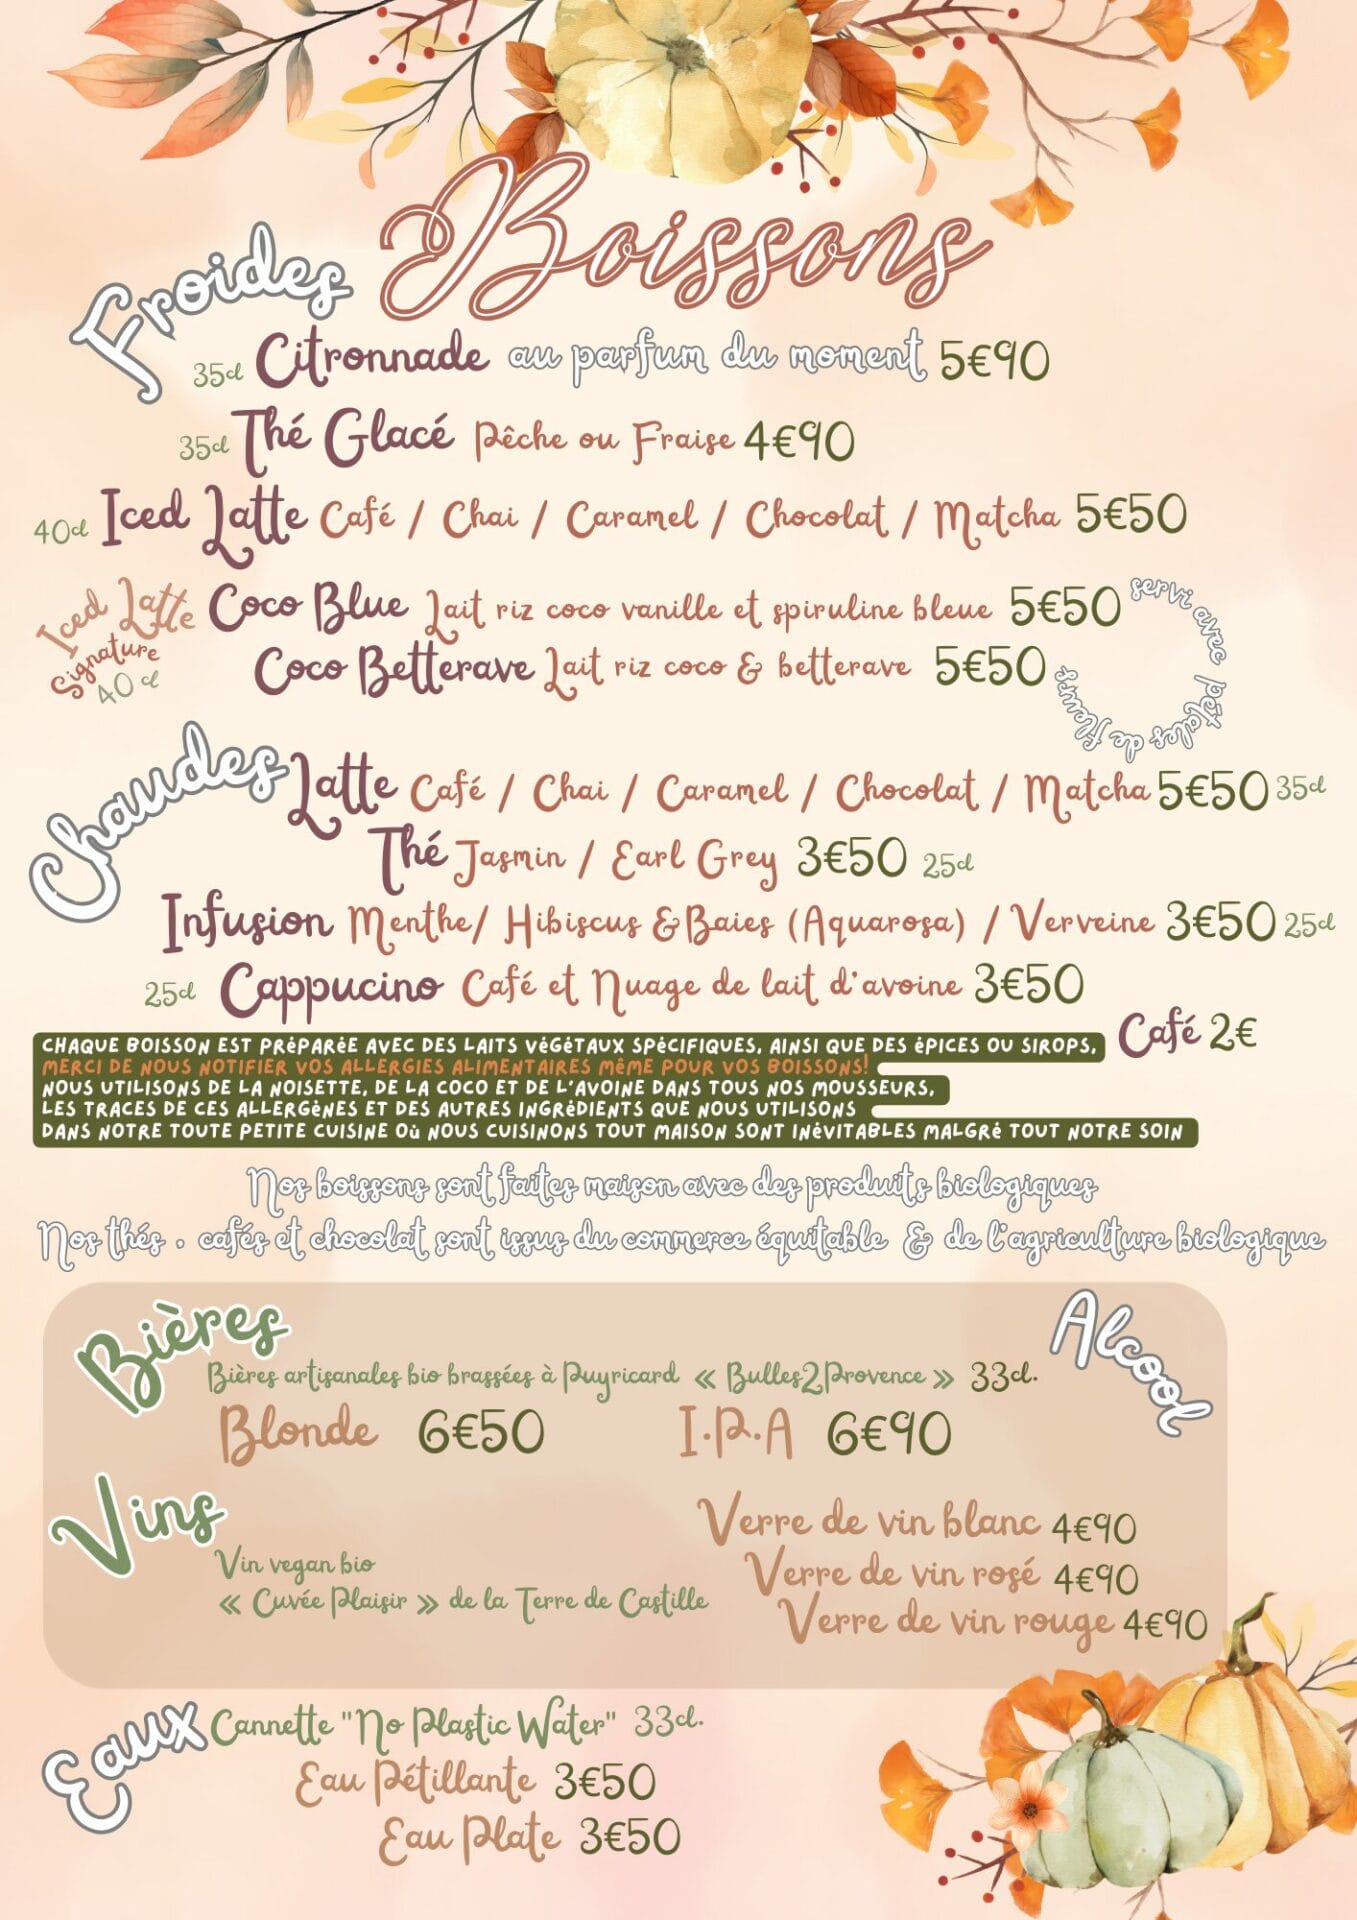 Boissons
Froides
35cl Citronnade au parfum du moment 5€90
35cl Thé Glacé Pêche ou Fraise 4€90
40cl Iced Latte Café / Chai / Caramel / Chocolat / Matcha 5€50
Iced Latte Signature 40 cl
Coco Blue Lait riz coco vanille et spiruline bleue 5€50
Coco Betterave Lait riz coco & betterave 5€50
servi avec pétales de fleurs
Chaudes
Latte Café / Chai / Caramel / Chocolat / Matcha 5€50 35cl
Thé Jasmin / Earl Grey 3€50 25cl
Infusion Menthe/ Hibiscus & Baies (Aquarosa) / Verveine 3€50 25cl
25cl Cappucino Café et Nuage de lait d'avoine 3€50
Café 2€
CHAQUE BOISSON EST PRéPARéE AVEC DES LAITS VéGéTAUX SPéCIFIQUES, AINSI QUE DES éPICES OU SIROPS,
MERCI DE NOUS NOTIFIER VOS ALLERGIES ALIMENTAIRES MêME POUR VOS BOISSONS!
NOUS UTILISONS DE LA NOISETTE, DE LA COCO ET DE L'AVOINE DANS TOUS NOS MOUSSEURS,
LES TRACES DE CES ALLERGèNES ET DES AUTRES INGRéDIENTS QUE NOUS UTILISONS
DANS NOTRE TOUTE PETITE CUISINE Où NOUS CUISINONS TOUT MAISON SONT INéVITABLES MALGRé TOUT NOTRE SOIN
Nos boissons sont faites maison avec des produits biologiques
Nos thés . cafés et chocolat sont issus du commerce équitable & de l'agriculture biologique
Alcool
Bières
Bières artisanales bio brassées à Puyricard « Bulles2Provence » 33cl.
Blonde 6€50 I.P.A 6€90
Vins
Vin vegan bio
« Cuvée Plaisir » de la Terre de Castille
Verre de vin blanc 4€90
Verre de vin rosé 4€90
Verre de vin rouge 4€90
Eaux
Cannette "No Plastic Water" 33cl.
Eau Pétillante 3€50
Eau Plate 3€50